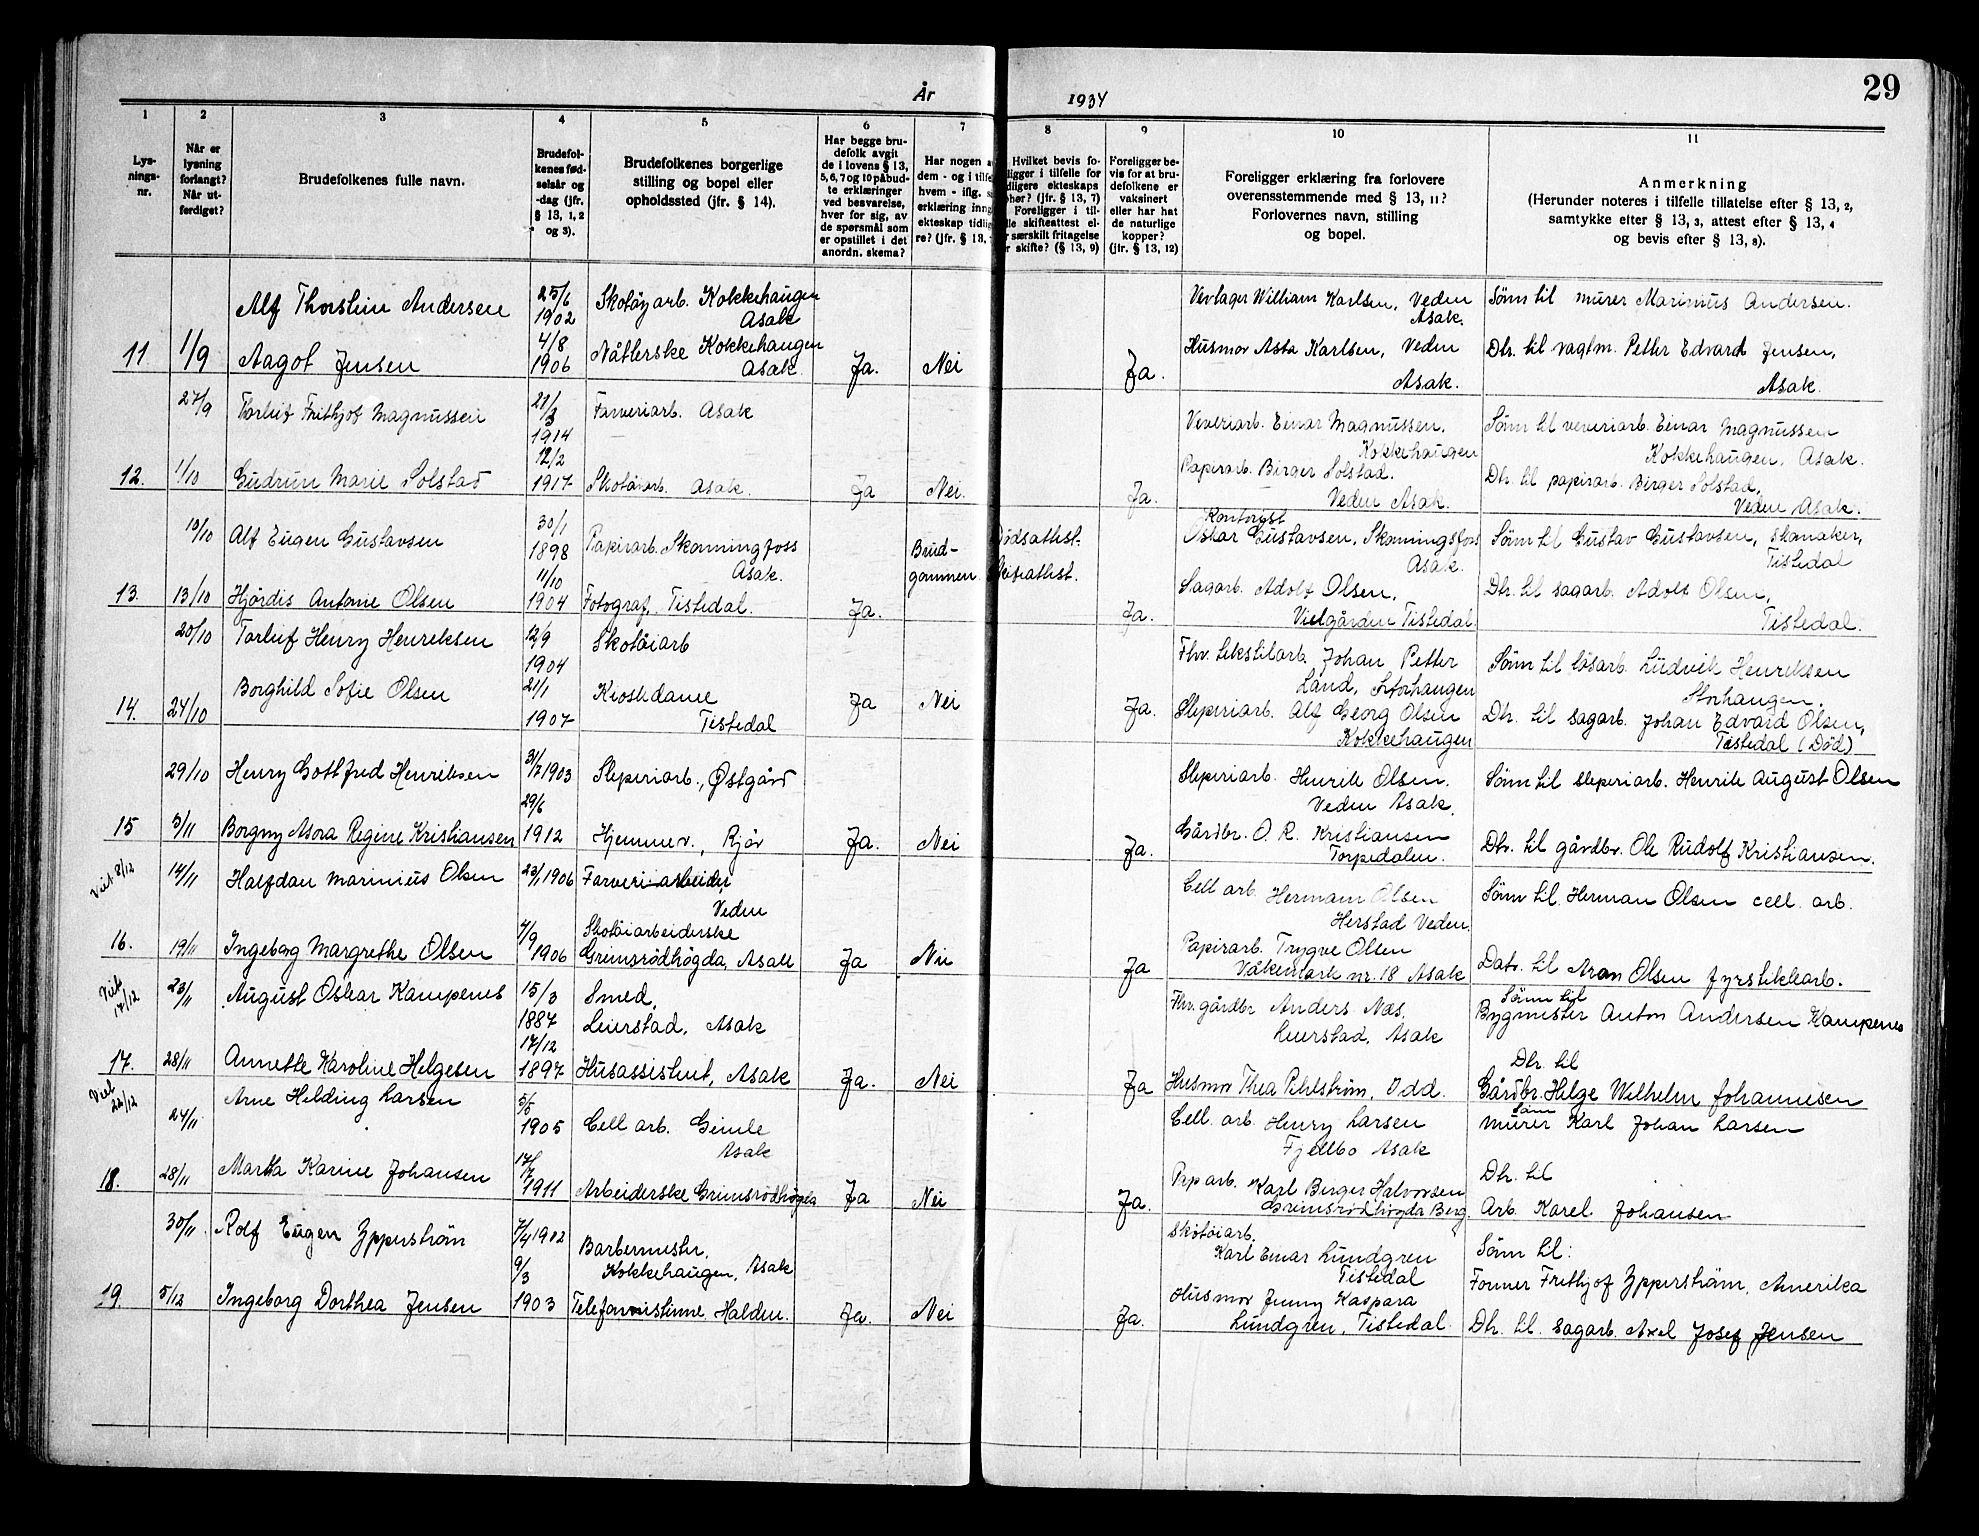 29
År 1934
1 2 3 4 5 6 7 8 9 10 11
Lys-
nings-
nr.
Når er
lysning
forlangt?
Når ut-
ferdiget?
Brudefolkenes fulle navn.
Brudefol-
kenes fød-
selsår og
-dag (jfr.
§ 13, 1, 2
og 3).
Brudefolkenes borgerlige
stilling og bopel eller
opholdssted (jfr. § 14).
Har begge bru-
defolk avgit
de i lovens § 13,
5, 6, 7 og 10 påbud-
te erklæringer
ved besvarelse,
hver for sig, av
de spørsmål som
er opstillet i det
anordn. skema?
Har nogen a
dem - og i tilfel
hvem - iflg. s
erklæring inng
ekteskap tidlig
re? (jfr. § 13,
Hvilket bevis fo-
ligger i tilfelle for
dligere ekteskaps
phør? (jfr. § 13, 7)
Foreligger i til-
lle skifteattest el-
r særskilt fritagelse
r skifte? (§ 13, 9)
Foreligger be-
vis for at bru-
defolkene er
vaksinert
eller har hat
de naturlige
kopper?
(jfr. § 13, 12)
Foreligger erklæring fra forlovere
overensstemmende med § 13, 11?
Forlovernes navn, stilling
og bopel.
Anmerkning
(Herunder noteres i tilfelle tillatelse efter § 13, 2,
samtykke efter § 13, 3, attest efter § 13, 4
og bevis efter § 13, 8).
Alf Thorstein Andersen 25/6 1902 Skotöyarb. Kokkehaugen Asak Vevlager William Karlsen, Veden Asak. Sönn til murer Marinius Andersen.
11 1/9 Aagot Jensen 4/8 1906 Nåtlerske Kokkehaugen Asak. Ja. Nei Ja. Husmor Asta Karlsen, Veden Asak. Dtr. til vagtm. Petter Edvard Jensen, Asak.
27/9 Torleif Frithjof Magnussen 21/3 1914 Farveriarb. Asak Veveriarb. Einar Magnussen, Kokkehaugen Sönn til veveriarb. Einar Magnussen Kokkehaugen, Asak.
12. 1/10 Gudrun Marie Solstad 12/2 1917 Skotöiarb. Asak. Ja Nei. Ja. Papirarb. Birger Solstad. Veden Asak. Dtr. til papirarb. Birger Solstad, Veden Asak.
10/10 Alf Eugen Gustavsen 30/1 1898 Papirarb. Skonningfoss Asak. Brud-
gommen Dödsattest. Skifteattest. Kontorist Oskar Gustavsen, Skonningsfoss Asak. Sönn til Gustav Gustavsen, skomaker, Tistedal
13. 13/10 Hjördis Antonie Olsen 11/10 1904 Fotograf, Tistedal. Ja. Ja. Sagarb. Adolf Olsen, Vielgården Tistedal. Dtr. til sagarb. Adolf Olsen, Tistedal.
20/10 Torleif Henry Henriksen 12/9 1904 Skotöiarb Fhv. tekstilarb. Johan Petter Land, Storhaugen Sönn til lösarb. Ludvik Henriksen Storhaugen.
14. 24/10 Borghild Sofie Olsen 21/1 1907 Kioskdame Tistedal Ja Nei Ja. Sliperiarb. Alf Georg Olsen Kokkehaugen Dtr. til sagarb. Johan Edvard Olsen, Tistedal (Död)
29/10 Henry Gottfred Henriksen 31/7 1903 Sliperiarb., Østgård Sliperiarb. Henrik Olsen. Veden Asak. Sönn til sliperiarb. Henrik August Olsen
15 3/11 Borgny Asora Regine Kristiansen 29/6 1912 Hjemmev., Rjör Ja. Nei Ja. Gårdbr. O. R. Kristiansen Torpedalen. Dtr. til gårdbr. Ole Rudolf Kristiansen.
Viet 8/12 14/11 Halfdan Marinius Olsen 22/1 1906 Farveriarbeider, Veden Cell arb. Hermann Olsen Herstad Veden. Sönn til Herman Olsen cell. arb.
16. 19/11 Ingeborg Margrethe Olsen 4/9 1906 Skotöiarbeiderske Grimsrödhögda, Asak Ja Nei Ja Papirarb. Trygve Olsen Våkenlark nr. 18 Asak Datr. til Aron Olsen fyrstikkarb.
Viet 17/12 23/11 August Oskar Kampenes 15/3 1887 Smed, Leierstad, Asak Fhv. gårdbr Anders Næs, Leierstad, Asak Sönn til Bygmester Anton Andersen Kampenes
17. 28/11 Annette Karoline Helgesen 17/12 1897 Husassistent, Asak Ja. Nei Ja Husmor Thea Pehlström, Idd. Dtr. til Gårdbr. Helge Wilhelm Johannesen
Viet 22/12 24/11 Arne Helding Larsen 5/5 1905 Cell arb. Gimle Asak Cell. arb. Henry Larsen Fjellbo Asak Sönn Murer Karl Johan Larsen
18. 28/11 Martha Karine Johansen 17/12 1911 Arbeiderske Grimsrödhögda Ja Nei Ja. Prp arb. Karl Birger Halvorsen Grimsrödhögda Berg. Dtr. til Arb. Karel Johansen
30/11. Rolf Eugen Ypperström 7/4 1902 Barbermester, Kokkehaugen, Asak Skotöiarb. Karl Einar Lundgren Tistedal Sönn til: Former Frithjof Ypperström, Amerika
19. 5/12 Ingeborg Dorthea Jensen 9/3 1903 Telefonistinne Halden. Ja. Nei Ja. Husmor Jenny Kaspara Lundgren, Tistedal. Dtr. til. sagarb. Axel Josef Jensen